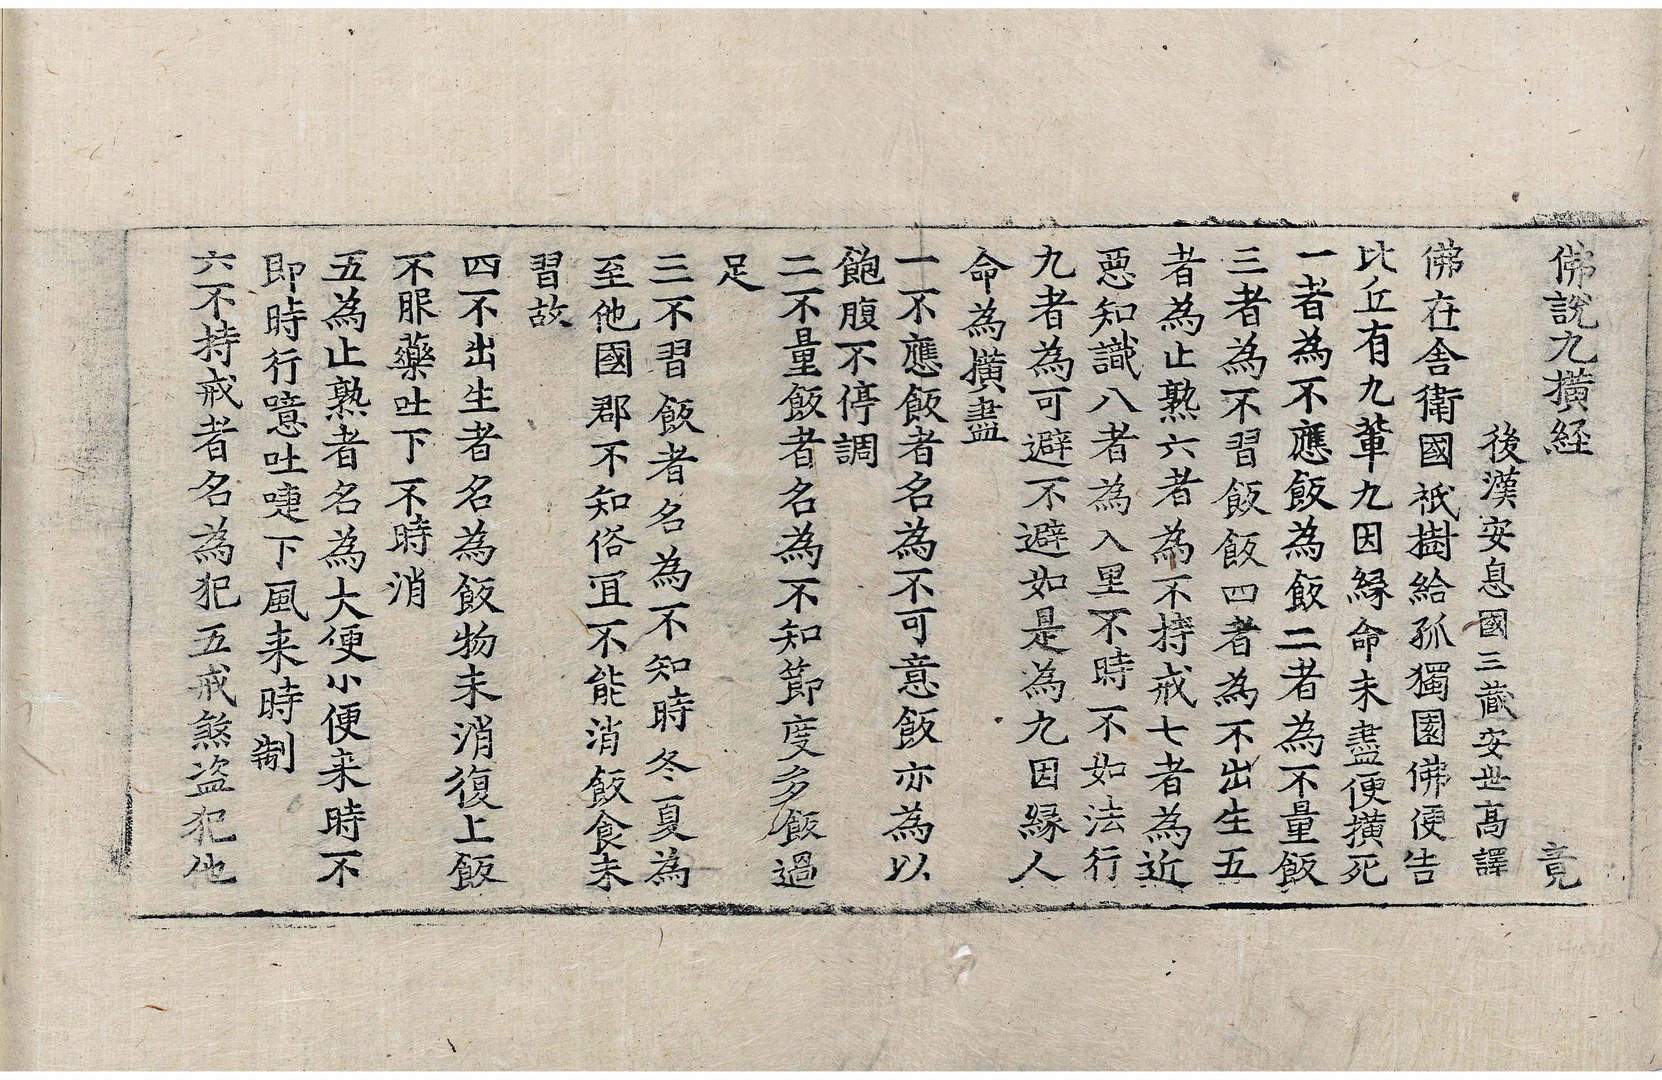 佛說九橫経 竟
後漢安息國三藏安世高譯
佛在舍衛國祇樹給孤獨園佛便告
比丘有九軰九因縁命未盡便橫死
一者為不應飯為飯二者為不量飯
三者為不習飯飯四者為不出生五
者為止熟六者為不持戒七者為近
惡知識八者為入里不時不如法行
九者為可避不避如是為九因縁人
命為橫盡
一不應飯者名為不可意飯亦為以
飽腹不停調
二不量飯者名為不知節度多飯過
足
三不習飯者名為不知時冬夏為
至他國郡不知俗冝不能消飯食未
習故
四不出生者名為飯物未消復上飯
不服藥吐下不時消
五為止熟者名為大便小便来時不
即時行噫吐嚏下風来時制
六不持戒者名為犯五戒煞盗犯他